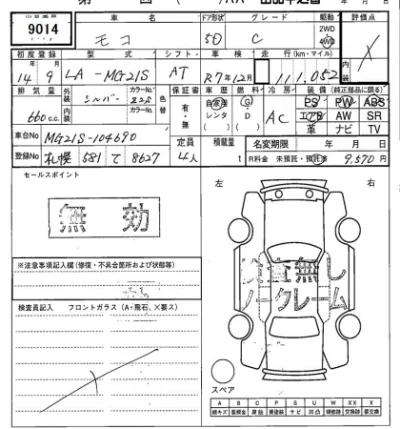 9014
車名
モコ
ドア形状
5D
グレード
C
駆動
2WD
4WD
評価点
初度登録
型式
シフト
車検
走行(km・マイル)
内装
14年9月
LA-MG21S
AT
R7年12月
111,052
排気量
外装
カラーNo.
色替
保証書
車歴
燃料
冷房
装備(純正部品に限る)
660cc
シルバー
有・無
自家用
レンタ
G
D
AC
PS PW ABS
エアB AW SR
革 ナビ TV
内装
カラーNo.
車台No
MG21S-104690
定員
積載量
名変期限
年 月 日
登録No
札幌 581 て 8627
4人
t
R料金 未預託・預託済
9,570円
セールスポイント
左 右
無効
※注意事項記入欄(修復・不具合箇所および状態等)
検査無し
ノークレーム
検査員記入
フロントガラス(A・飛石、×要ス)
スペア
A B C P S U W X XX